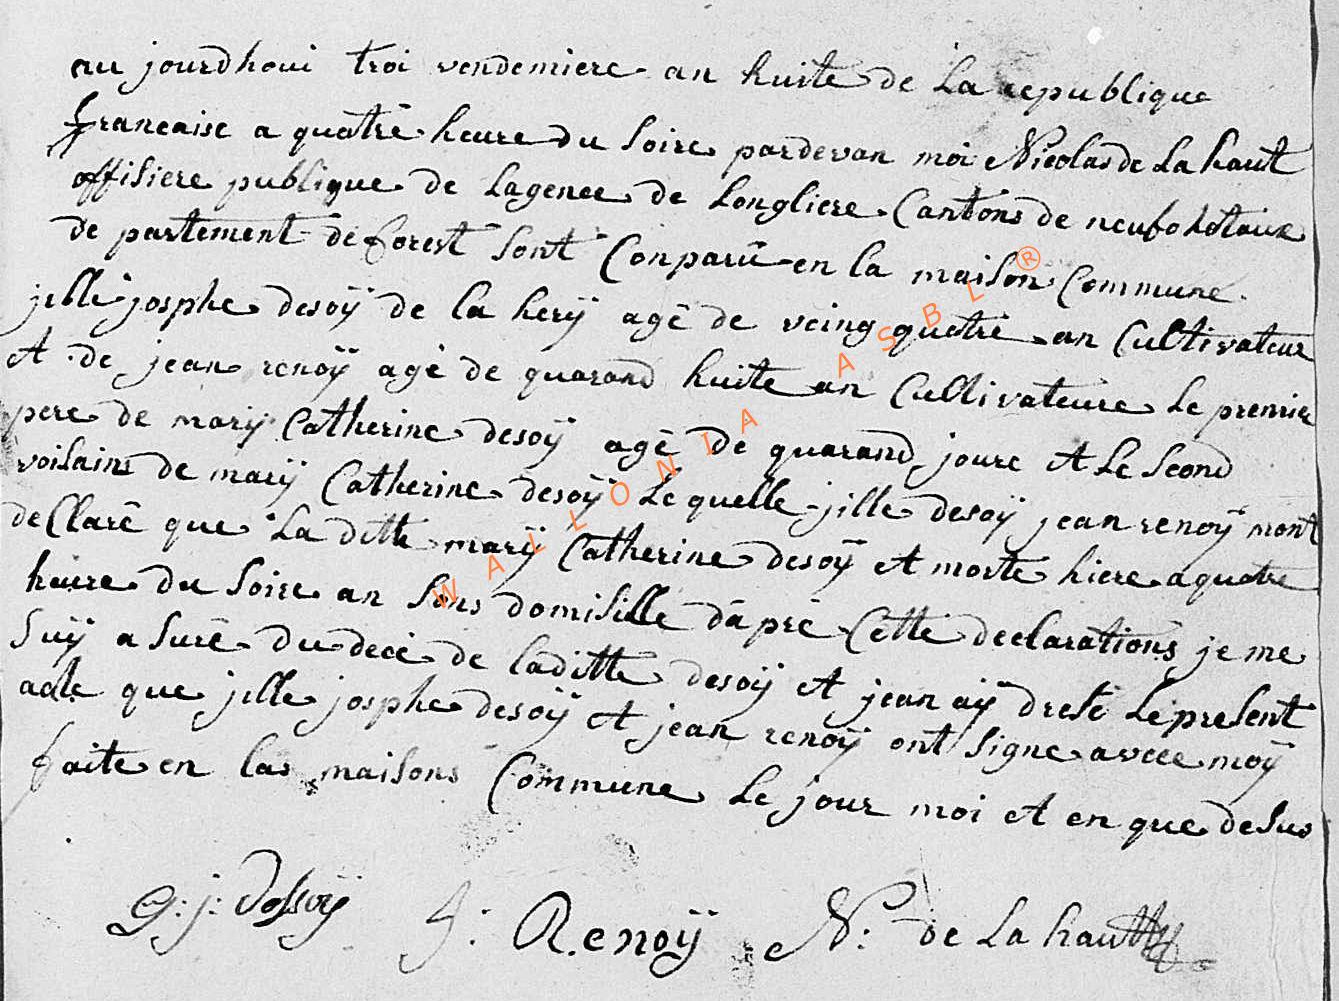 au jourdhoui troi vendemiere an huite de La republique
francaise a quatre heure du soire pardevan moi Nicolas de La haut
offisiere publique de Lagence de Longliere Cantons de neufchataux
de partement de forest sont Conparû en la maison Commune
jille josphe desoÿ de la herÿ agé de veing quatre an Cultivateur
et de jean renoÿ agé de quarand huite an Cultivateure Le premier
pere de marÿ Catherine desoÿ agé de quarand joure et Le seond
voisains de marÿ Catherine desoÿ Le quelle jille desoÿ jean renoÿ mont
deClaré que La ditte marÿ Catherine desoÿ et morte hiere a quatre
heure du soire an sons domisille dapré Cette declarations je me
suÿ asuré du decé de laditte desoÿ et jean aÿ dresé Le present
acte que jille josphe desoÿ et jean renoÿ ont signe avece moÿ
faite en las maisons Commune Le jour moi et en que desus
G: j: dessoÿ J: Renoÿ N: de La haut
WALLONIA ASBL ®